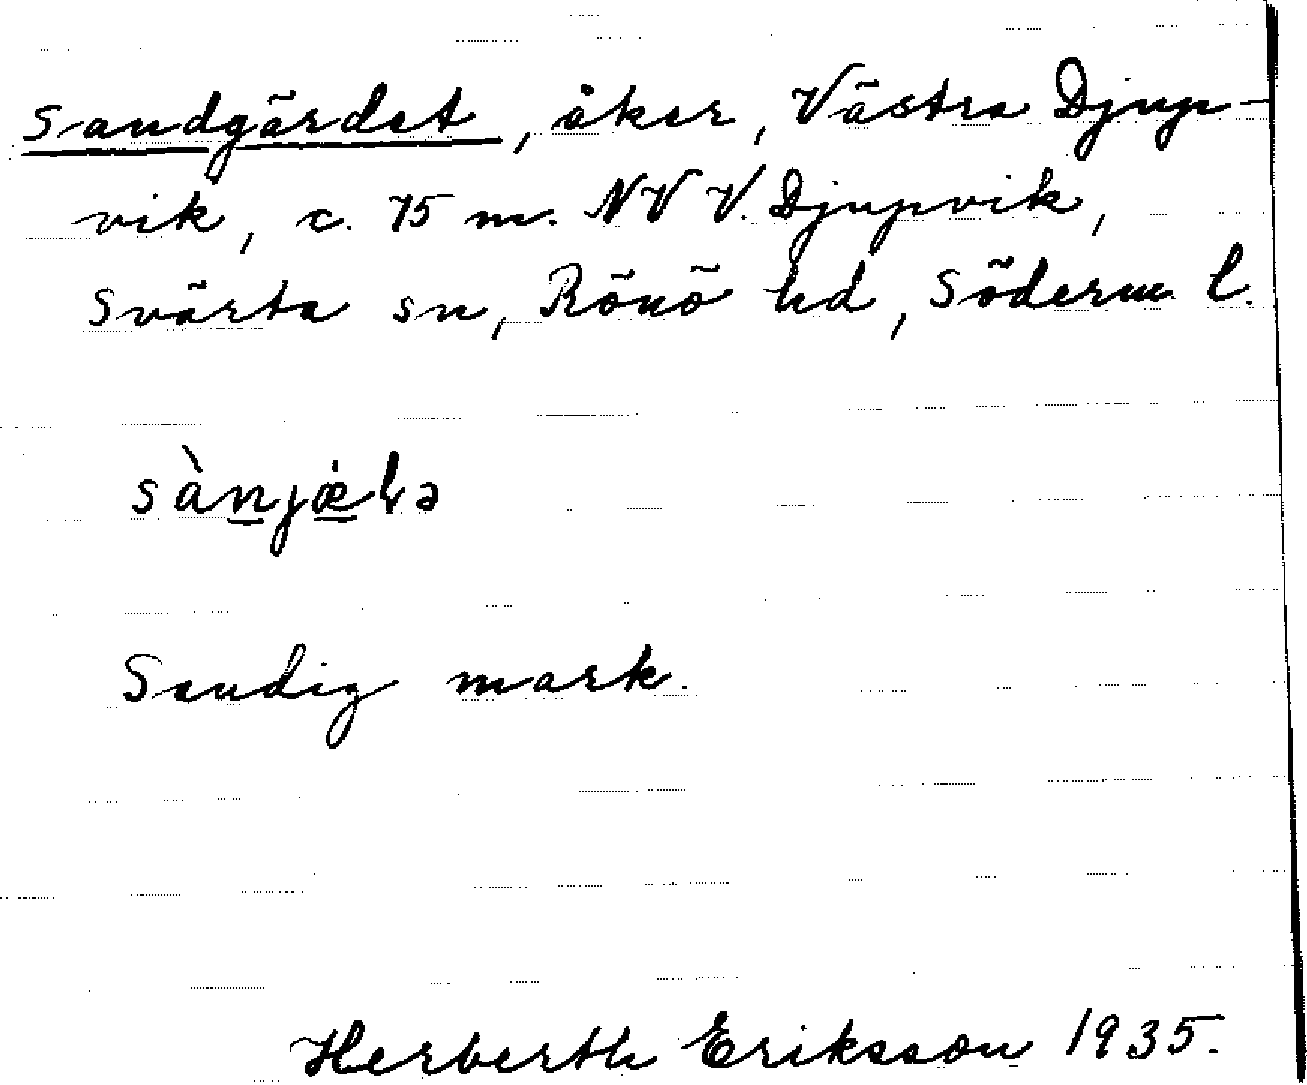 Sandgärdet, åker, Västra Djup-
vik, c. 75 m. NV V. Djupvik,
Svärta sn, Rönö hd, Söderm. l.
sànjæ̀ɭə
Sandig mark.
Herberth Eriksson 1935.